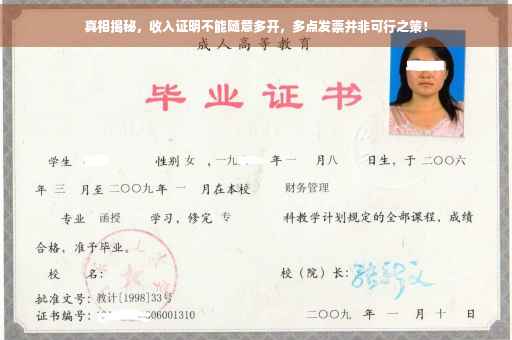 真相揭秘，收入证明不能随意多开，多点发票并非可行之策！
成人高等教育
毕业证书
学生 性别 女 ，一九 年 一 月 八 日生，于 二〇〇六
年 三 月至 二〇〇九 年 一 月在本校 财务管理
专业 函授 学习，修完 专 科教学计划规定的全部课程，成绩
合格，准予毕业。
校 名： 校（院）长：
批准文号：教计[1998]33号
证书编号： 06001310 二〇〇九 年 一 月 十 日